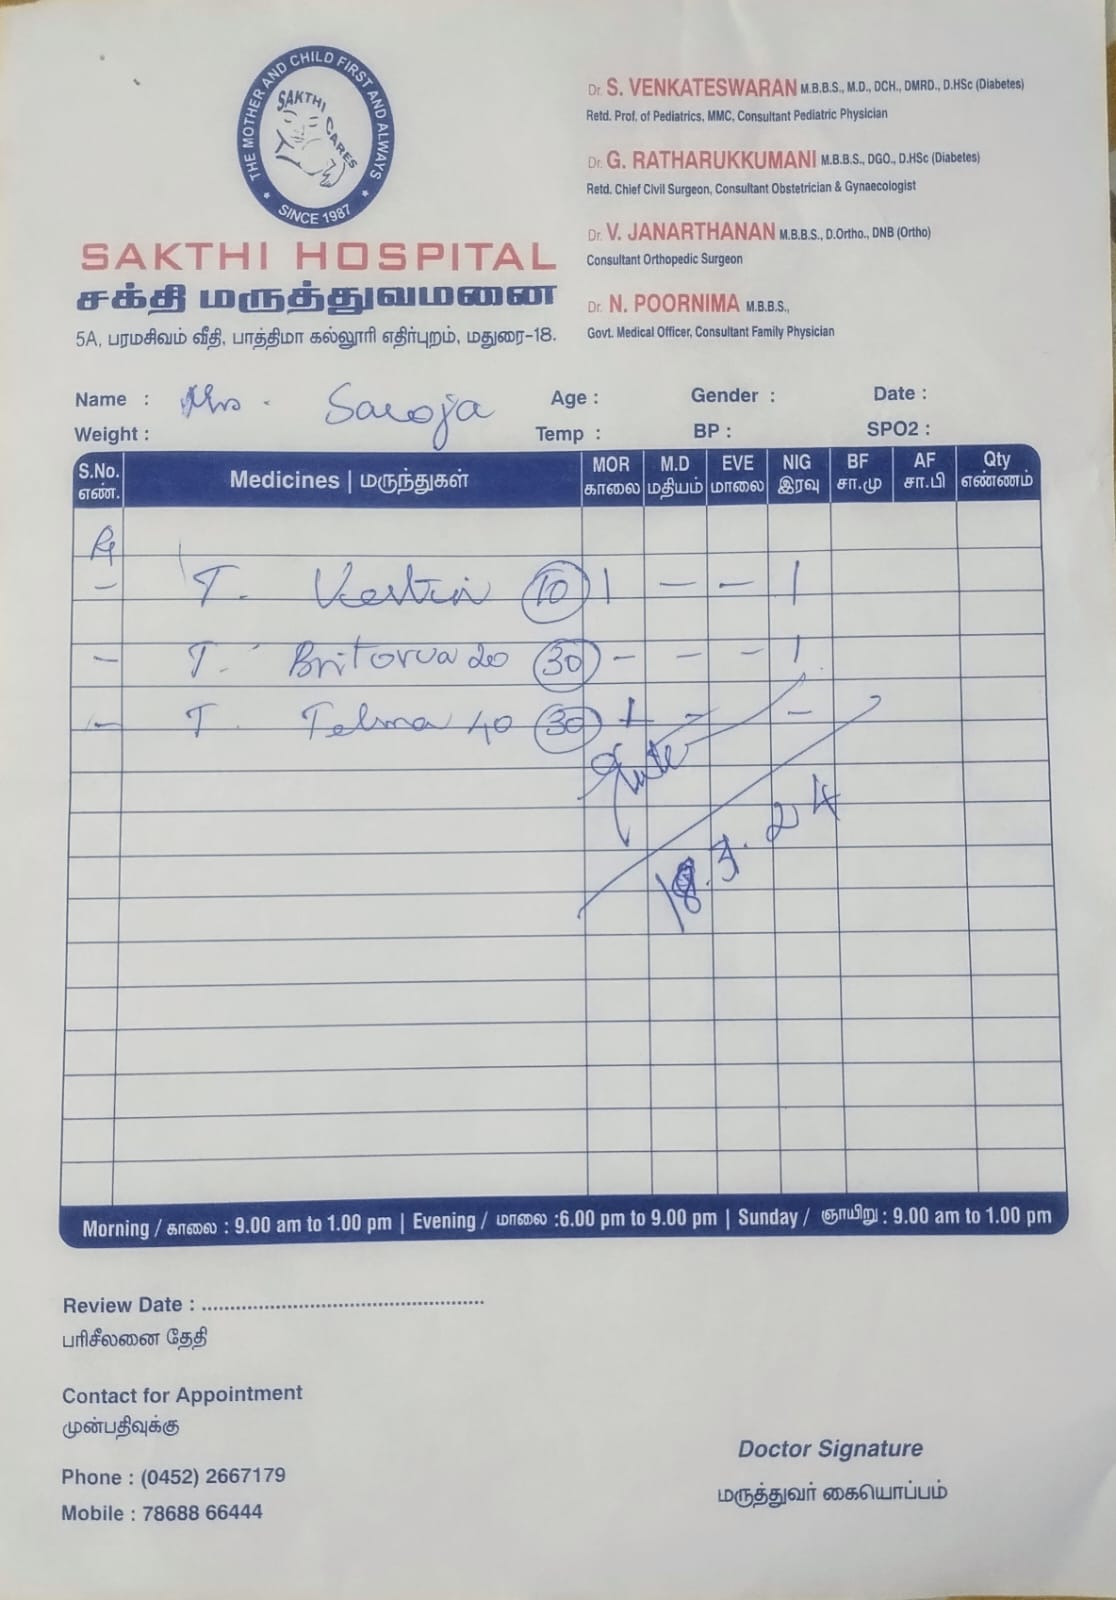 THE MOTHER AND CHILD FIRST AND ALWAYS
SAKTHI CARES
* SINCE 1987 *
SAKTHI HOSPITAL
சக்தி மருத்துவமனை
5A, பரமசிவம் வீதி, பாத்திமா கல்லூரி எதிர்புறம், மதுரை-18.
Dr. S. VENKATESWARAN M.B.B.S., M.D., DCH., DMRD., D.HSc (Diabetes)
Retd. Prof. of Pediatrics, MMC, Consultant Pediatric Physician
Dr. G. RATHARUKKUMANI M.B.B.S., DGO., D.HSc (Diabetes)
Retd. Chief Civil Surgeon, Consultant Obstetrician & Gynaecologist
Dr. V. JANARTHANAN M.B.B.S., D.Ortho., DNB (Ortho)
Consultant Orthopedic Surgeon
Dr. N. POORNIMA M.B.B.S.,
Govt. Medical Officer, Consultant Family Physician
Name : Mrs. Saroja Age : Gender : Date :
Weight : Temp : BP : SPO2 :
S.No. Medicines | மருந்துகள் MOR M.D EVE NIG BF AF Qty
எண். காலை மதியம் மாலை இரவு சா.மு சா.பி எண்ணம்
Rx
- T. 10 1 - - 1
- T. Britorva 20 30 - - - 1
- T. Telma 40 30 1 - -
24
Morning / காலை : 9.00 am to 1.00 pm | Evening / மாலை :6.00 pm to 9.00 pm | Sunday / ஞாயிறு : 9.00 am to 1.00 pm
Review Date : ..................................................
பரிசீலனை தேதி
Contact for Appointment
முன்பதிவுக்கு
Phone : (0452) 2667179
Mobile : 78688 66444
Doctor Signature
மருத்துவர் கையொப்பம்